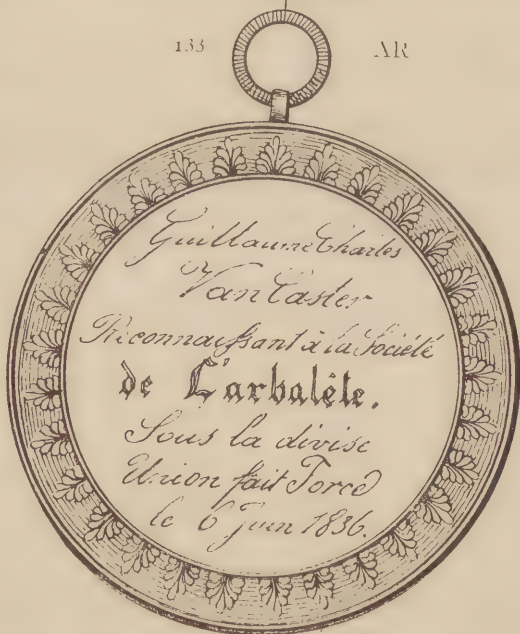 133 AR
Guillaume Charles
Van Caster
Reconnaissant à la Société
de L'arbalête.
Sous la divise
Union fait Force
le 6 Juin 1836.